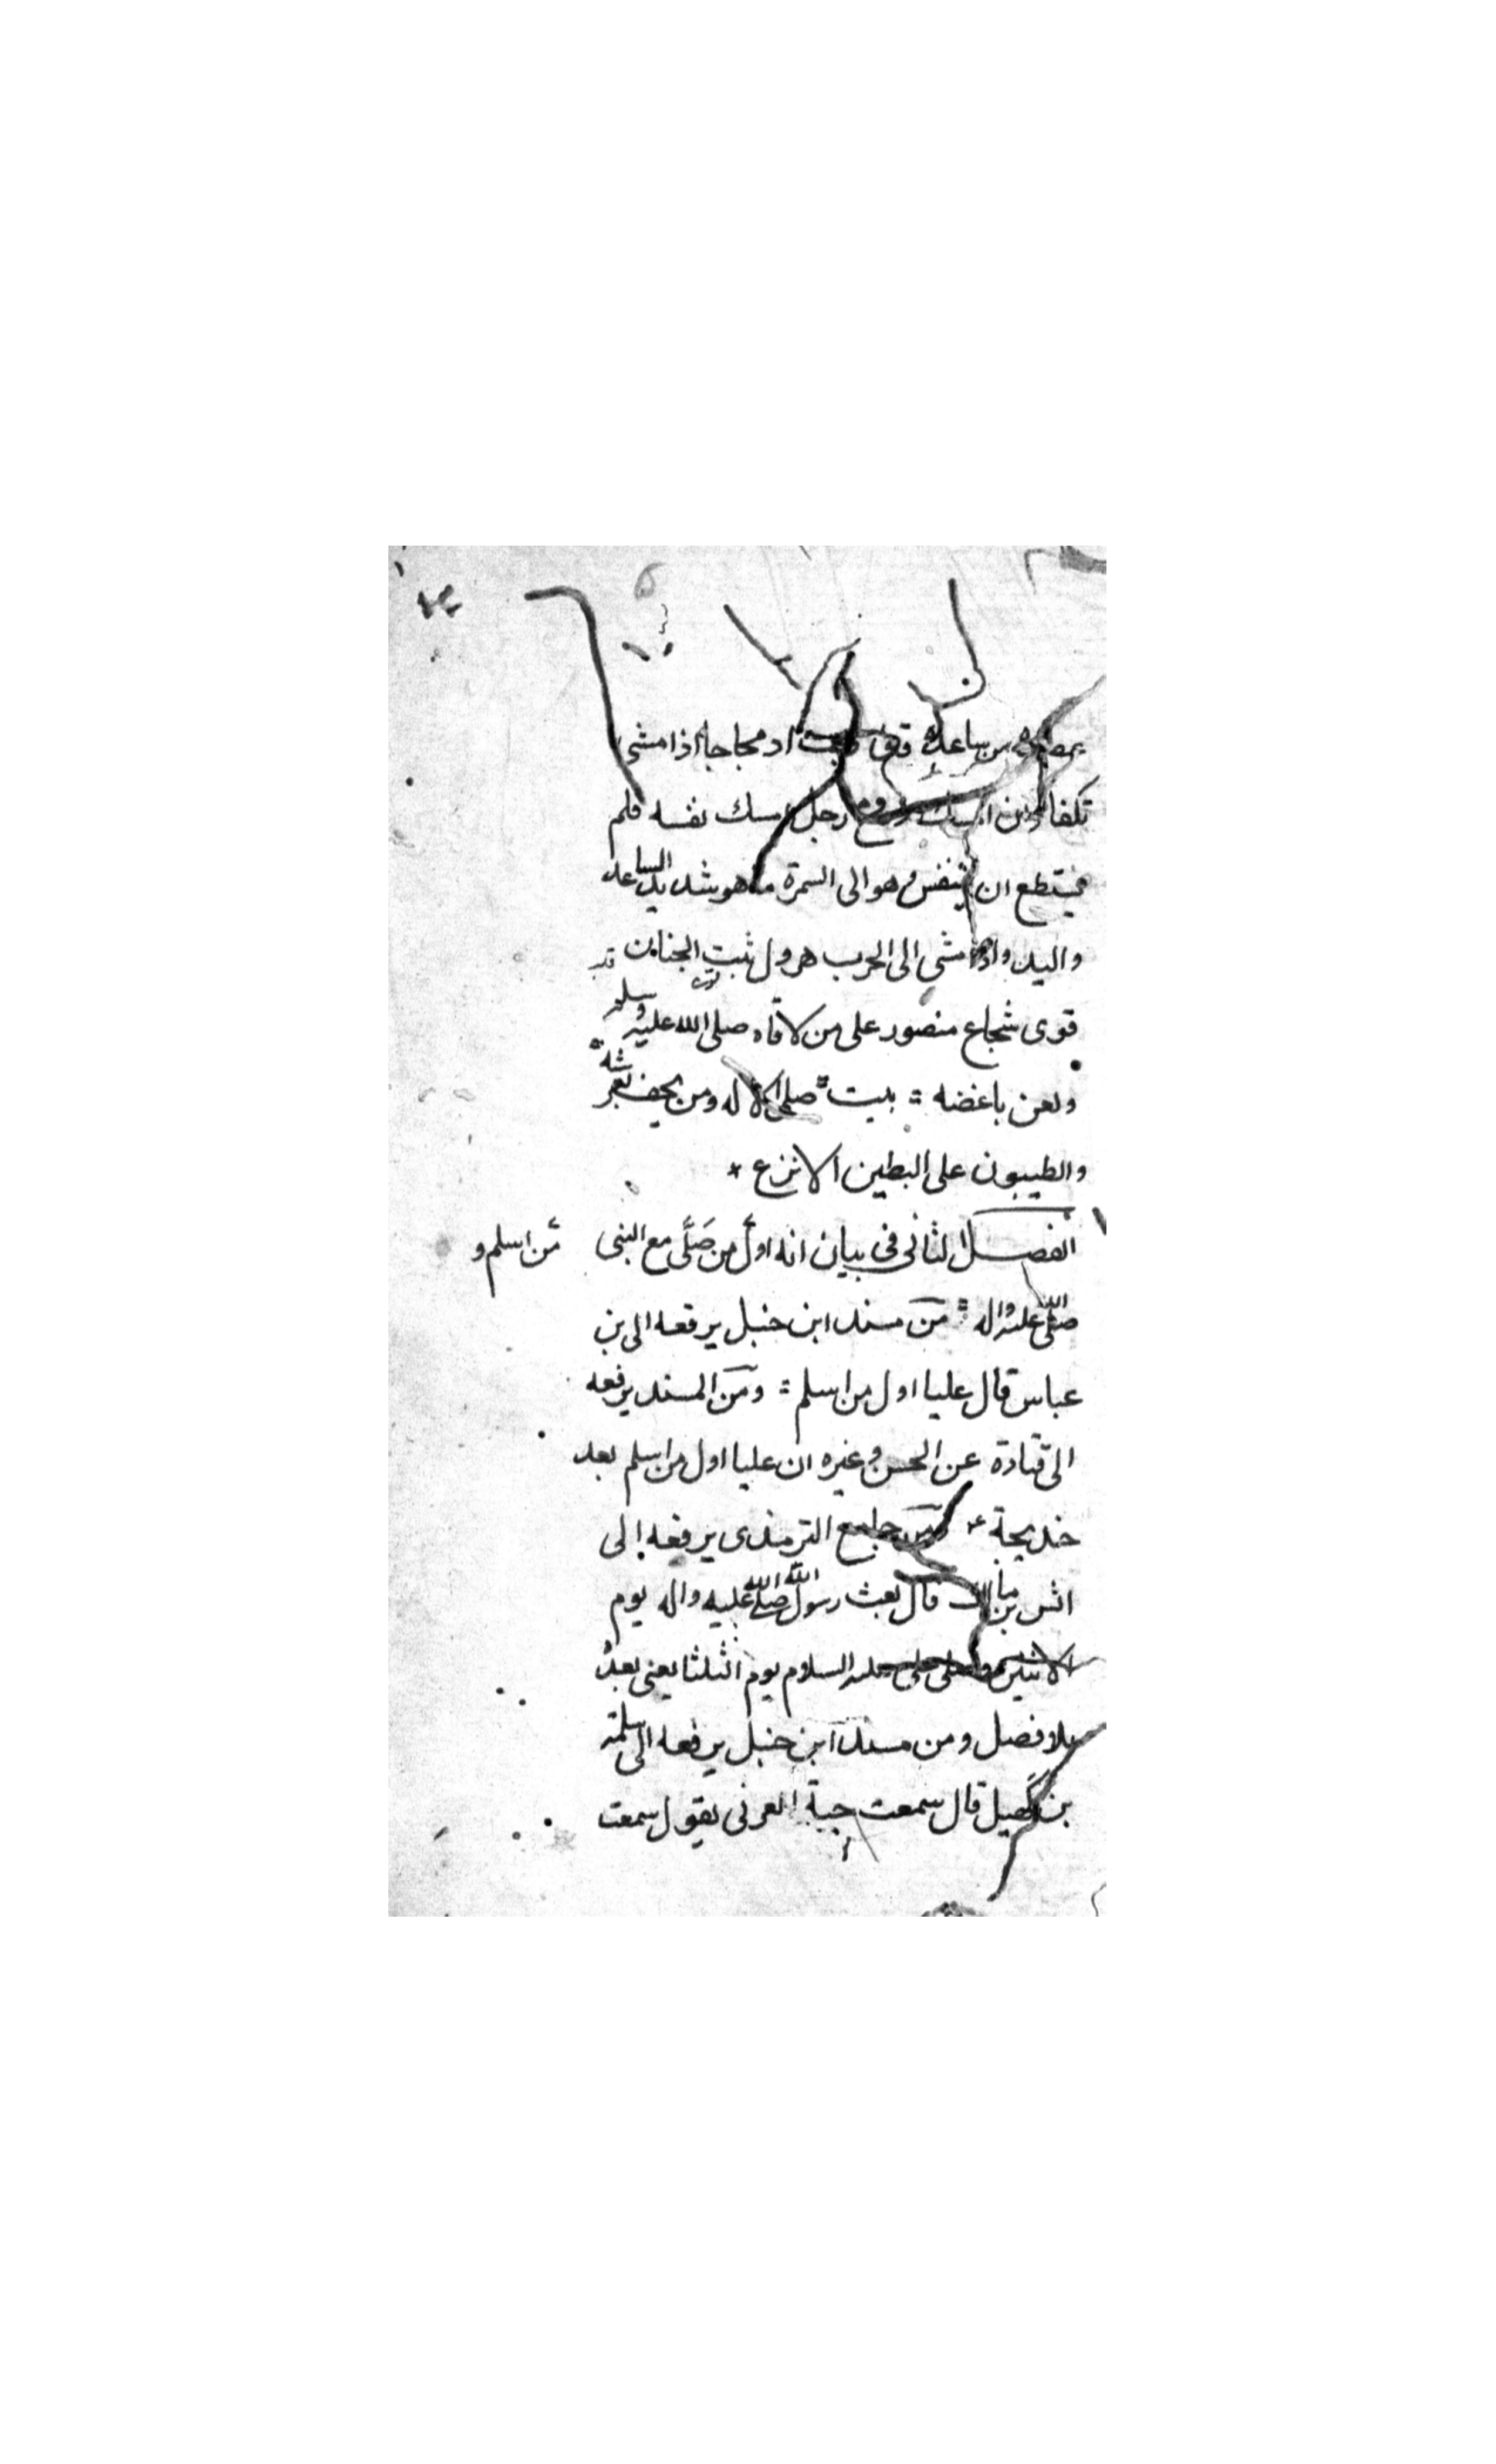 من ساعده قد ادمجت ادماجا اذا مشى
تكفا وان امسك رجل امسك نفسه فلم
يستطع ان يتنفس هو الى السمرة ما هو شديد الساعد
واليد واذا مشى الى الحرب هرول ثبت الجنان
قوى شجاع منصور على من لاقاه صلى الله عليه وسلم
ولعن باغضه بيت صلى الاله ومن يحف بعرشه
والطيبون على البطين الانزع
الفصل الثانى فى بيان انه اول من صلى مع النبى من اسلم و
صلى الله عليه واله من مسند ابن حنبل يرفعه الى بن
عباس قال عليا اول من اسلم ومن المسند يرفعه
الى قتادة عن الحسن وغيره ان عليا اول من اسلم بعد
خديجة ومن جامع الترمذى يرفعه الى
انس بن مالك قال بعث رسول الله صلى الله عليه واله يوم
الاثنين وصلى على عليه السلام يوم الثلثا يعنى بعد
بلا فصل ومن مسند ابن حنبل يرفعه الى سلمة
بن كهيل قال سمعت حبة العرنى يقول سمعت